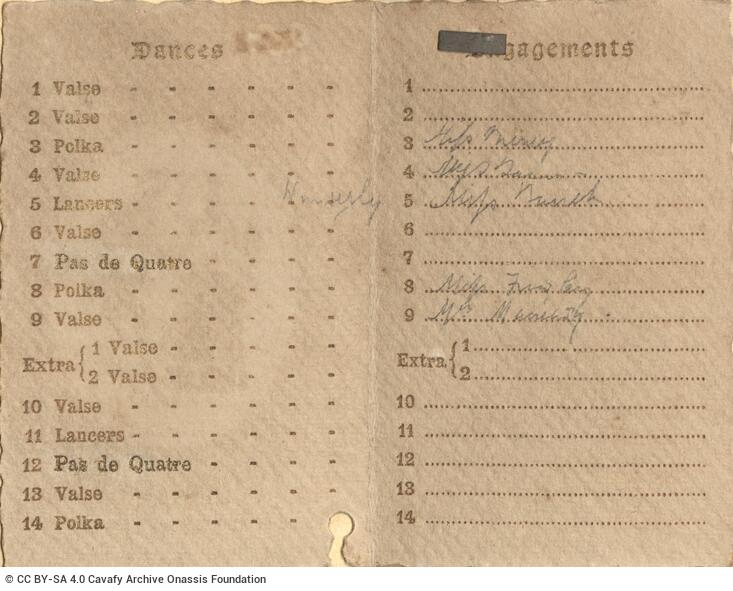 Dances
1 Valse
2 Valse
3 Polka
4 Valse
5 Lancers
6 Valse
7 Pas de Quatre
8 Polka
9 Valse
Extra { 1 Valse
2 Valse
10 Valse
11 Lancers
12 Pas de Quatre
13 Valse
14 Polka
Engagements
1
2
3 Miss
4 Miss
5 Miss
6
7
8 Miss
9
Extra { 1
2
10
11
12
13
14
© CC BY-SA 4.0 Cavafy Archive Onassis Foundation